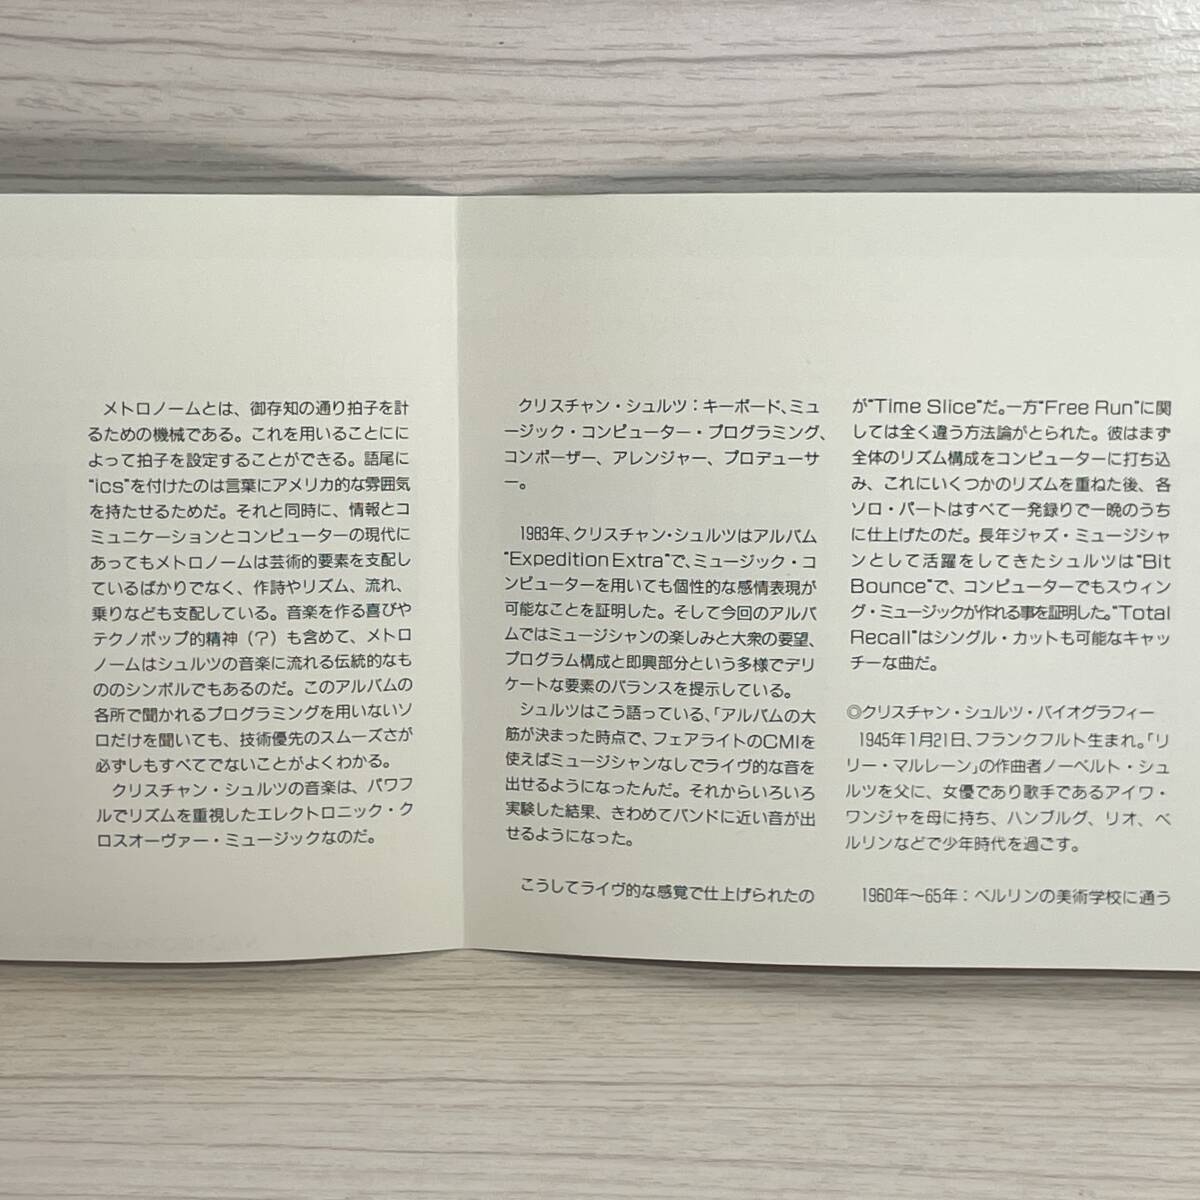 メトロノームとは、御存知の通り拍子を計
るための機械である。これを用いることにに
よって拍子を設定することができる。語尾に
“ics”を付けたのは言葉にアメリカ的な雰囲気
を持たせるためだ。それと同時に、情報とコ
ミュニケーションとコンピューターの現代に
あってもメトロノームは芸術的要素を支配し
ているばかりでなく、作詩やリズム、流れ、
乗りなども支配している。音楽を作る喜びや
テクノポップ的精神（？）も含めて、メトロ
ノームはシュルツの音楽に流れる伝統的なも
ののシンボルでもあるのだ。このアルバムの
各所で聞かれるプログラミングを用いないソ
ロだけを聞いても、技術優先のスムーズさが
必ずしもすべてでないことがよくわかる。
クリスチャン・シュルツの音楽は、パワフ
ルでリズムを重視したエレクトロニック・ク
ロスオーヴァー・ミュージックなのだ。
クリスチャン・シュルツ：キーボード、ミュ
ージック・コンピューター・プログラミング、
コンポーザー、アレンジャー、プロデューサ
ー。
1983年、クリスチャン・シュルツはアルバム
“Expedition Extra”で、ミュージック・コ
ンピューターを用いても個性的な感情表現が
可能なことを証明した。そして今回のアルバ
ムではミュージシャンの楽しみと大衆の要望、
プログラム構成と即興部分という多様でデリ
ケートな要素のバランスを提示している。
シュルツはこう語っている、「アルバムの大
筋が決まった時点で、フェアライトのCMIを
使えばミュージシャンなしでライヴ的な音を
出せるようになったんだ。それからいろいろ
実験した結果、きわめてバンドに近い音が出
せるようになった。
こうしてライヴ的な感覚で仕上げられたの
が“Time Slice”だ。一方“Free Run”に関
しては全く違う方法論がとられた。彼はまず
全体のリズム構成をコンピューターに打ち込
み、これにいくつかのリズムを重ねた後、各
ソロ・パートはすべて一発録りで一晩のうち
に仕上げたのだ。長年ジャズ・ミュージシャ
ンとして活躍をしてきたシュルツは“Bit
Bounce”で、コンピューターでもスウィン
グ・ミュージックが作れる事を証明した。“Total
Recall”はシングル・カットも可能なキャッ
チーな曲だ。
◎クリスチャン・シュルツ・バイオグラフィー
1945年1月21日、フランクフルト生まれ。「リ
リー・マルレーン」の作曲者ノーベルト・シュ
ルツを父に、女優であり歌手であるアイワ・
ワンジャを母に持ち、ハンブルグ、リオ、ベ
ルリンなどで少年時代を過ごす。
1960年〜65年：ベルリンの美術学校に通う